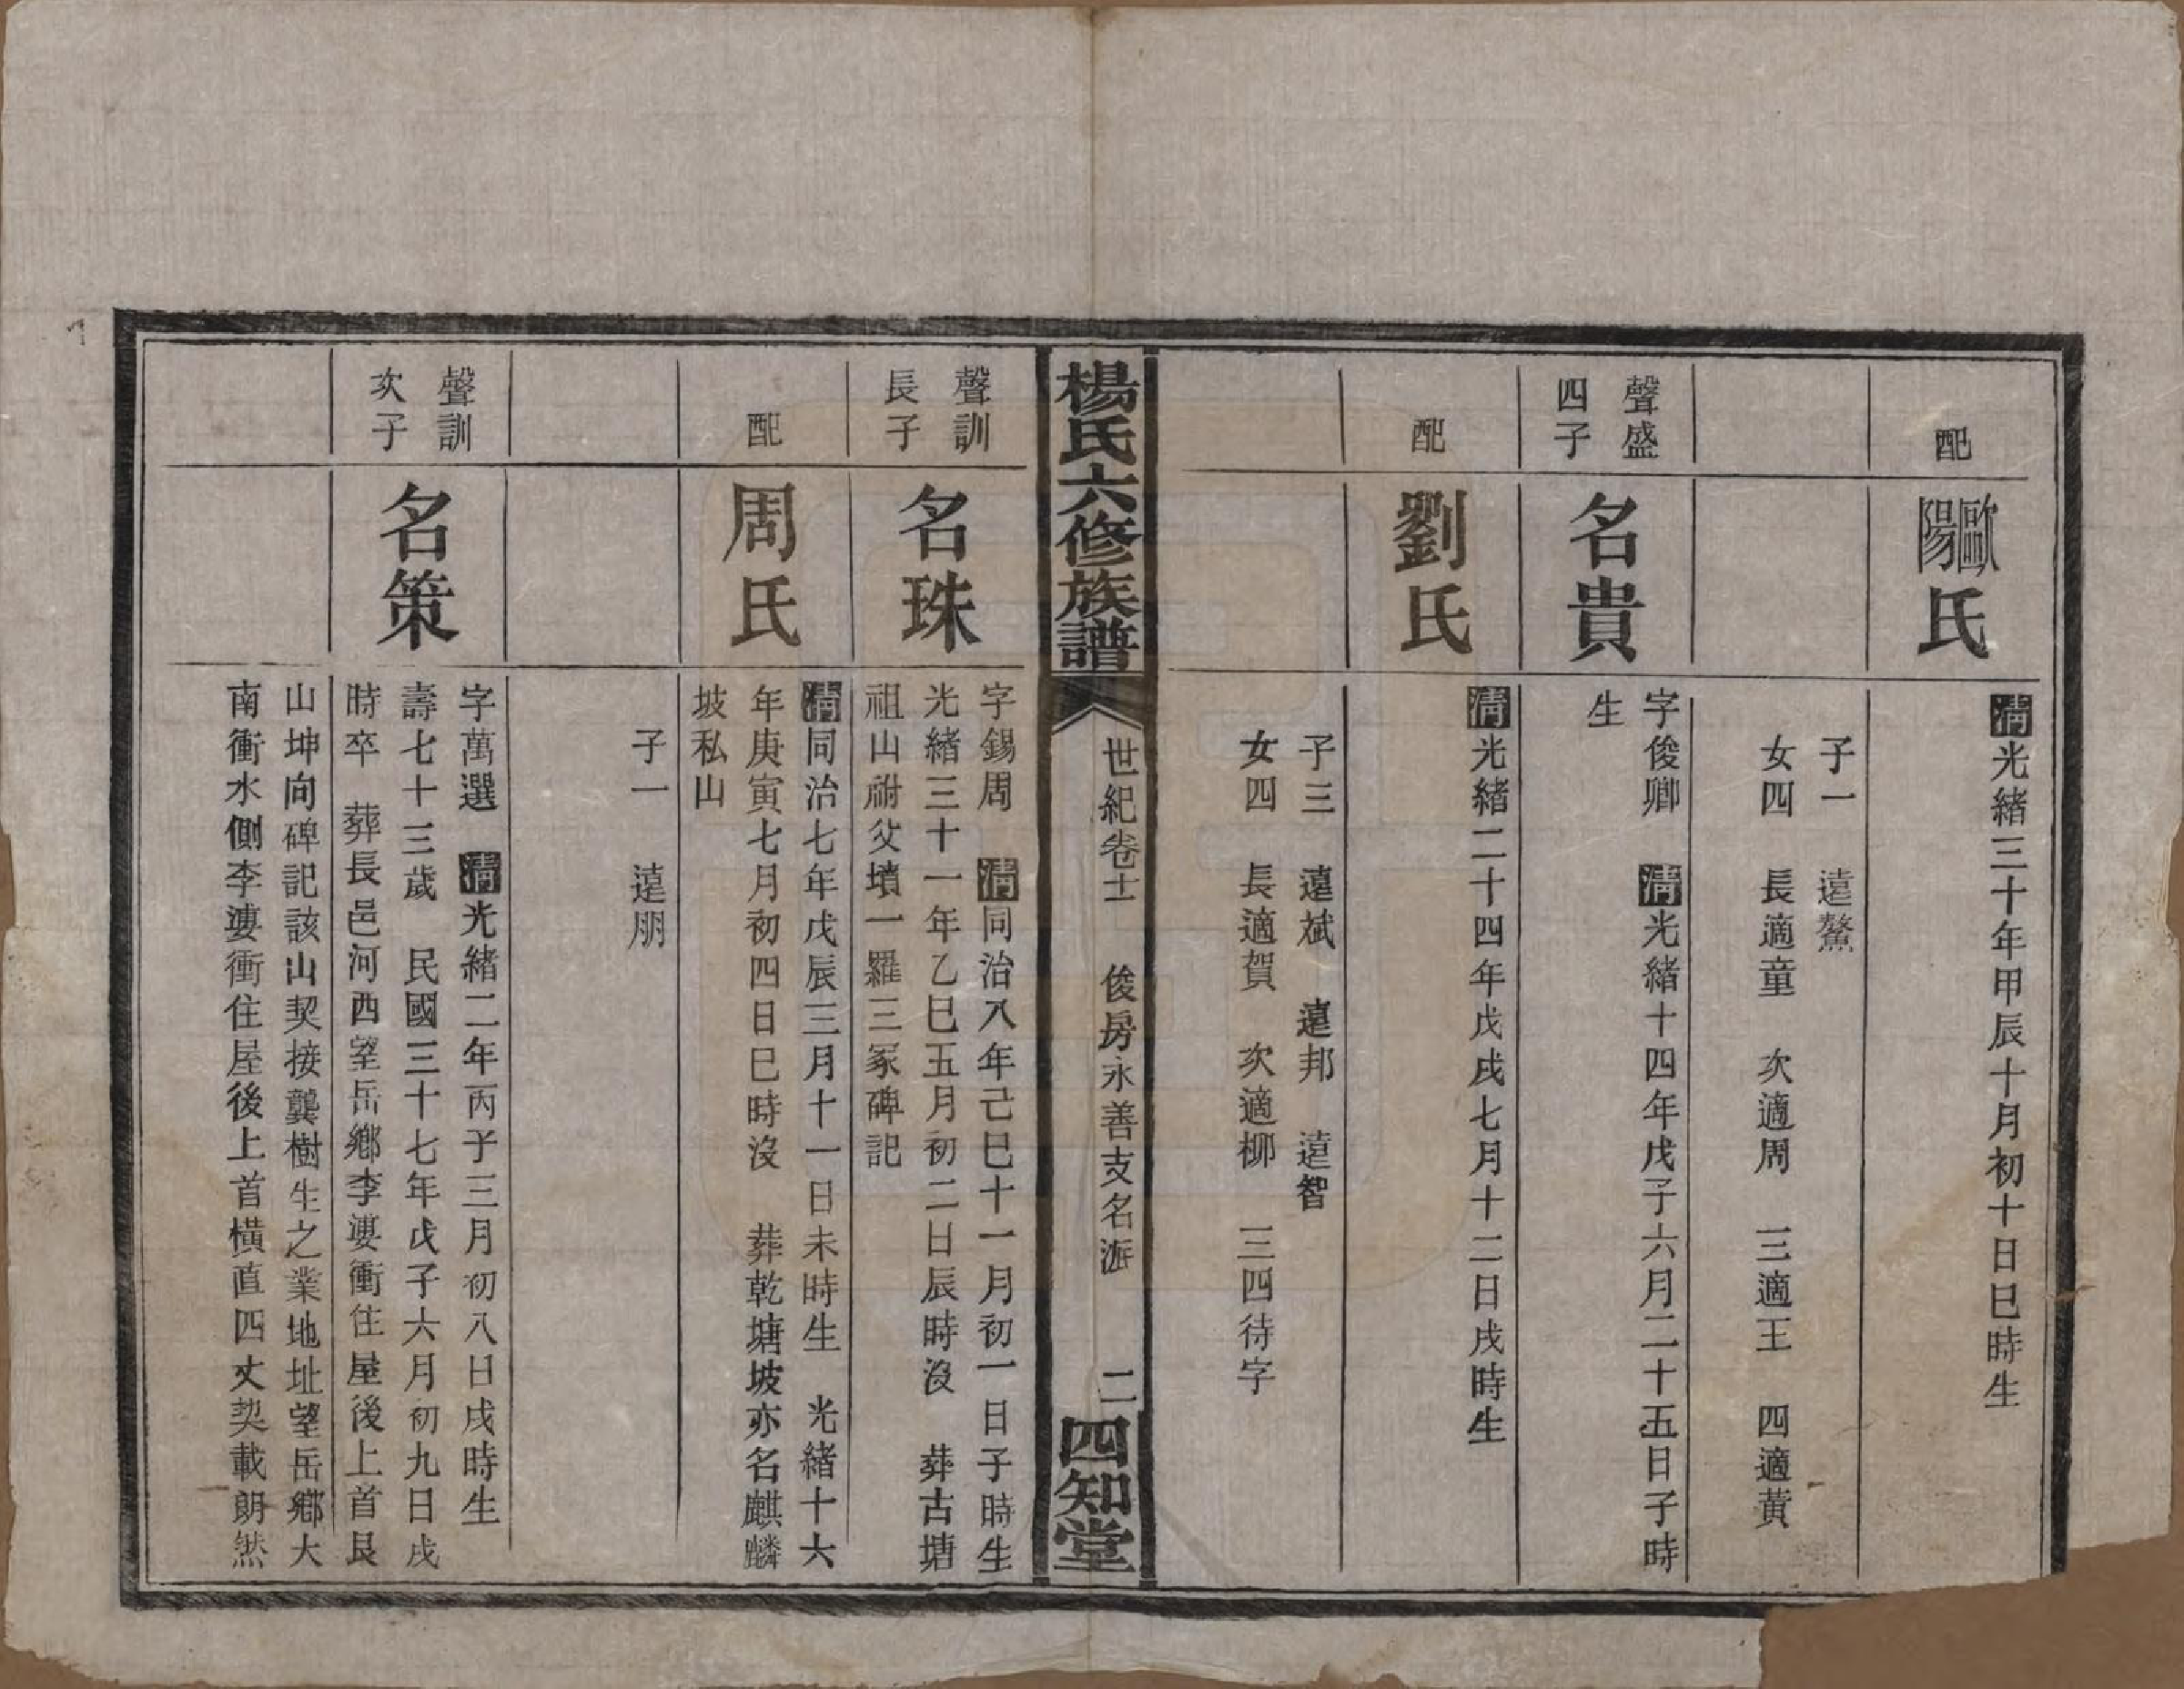 配
歐陽氏
清光緒三十年甲辰十月初十日巳時生
子一　遠鰲
女四　長適童　次適周　三適王　四適黃
聲盛
四子
名貴
字俊卿　清光緒十四年戊子六月二十五日子時
生
配
劉氏
清光緒二十四年戊戌七月十二日戌時生
子三　遠斌　遠邦　遠智
女四　長適賀　次適柳　三四待字
楊氏六修族譜
世紀卷十二　俊房永善支名派　二
四知堂
聲訓
長子
名珠
字錫周　清同治八年己巳十一月初一日子時生
光緒三十一年乙巳五月初二日辰時沒　葬古塘
祖山祔父墳一羅三冢碑記
配
周氏
清同治七年戊辰三月十一日未時生　光緒十六
年庚寅七月初四日巳時沒　葬乾塘坡亦名麒麟
坡私山
子一　遠朋
聲訓
次子
名策
字萬選　清光緒二年丙子三月初八日戌時生
壽七十三歲　民國三十七年戊子六月初九日戌
時卒　葬長邑河西望岳鄉李婁衝住屋後上首艮
山坤向碑記該山契接龔樹生之業地址望岳鄉大
南衝水側李婁衝住屋後上首橫直四丈契載朗然